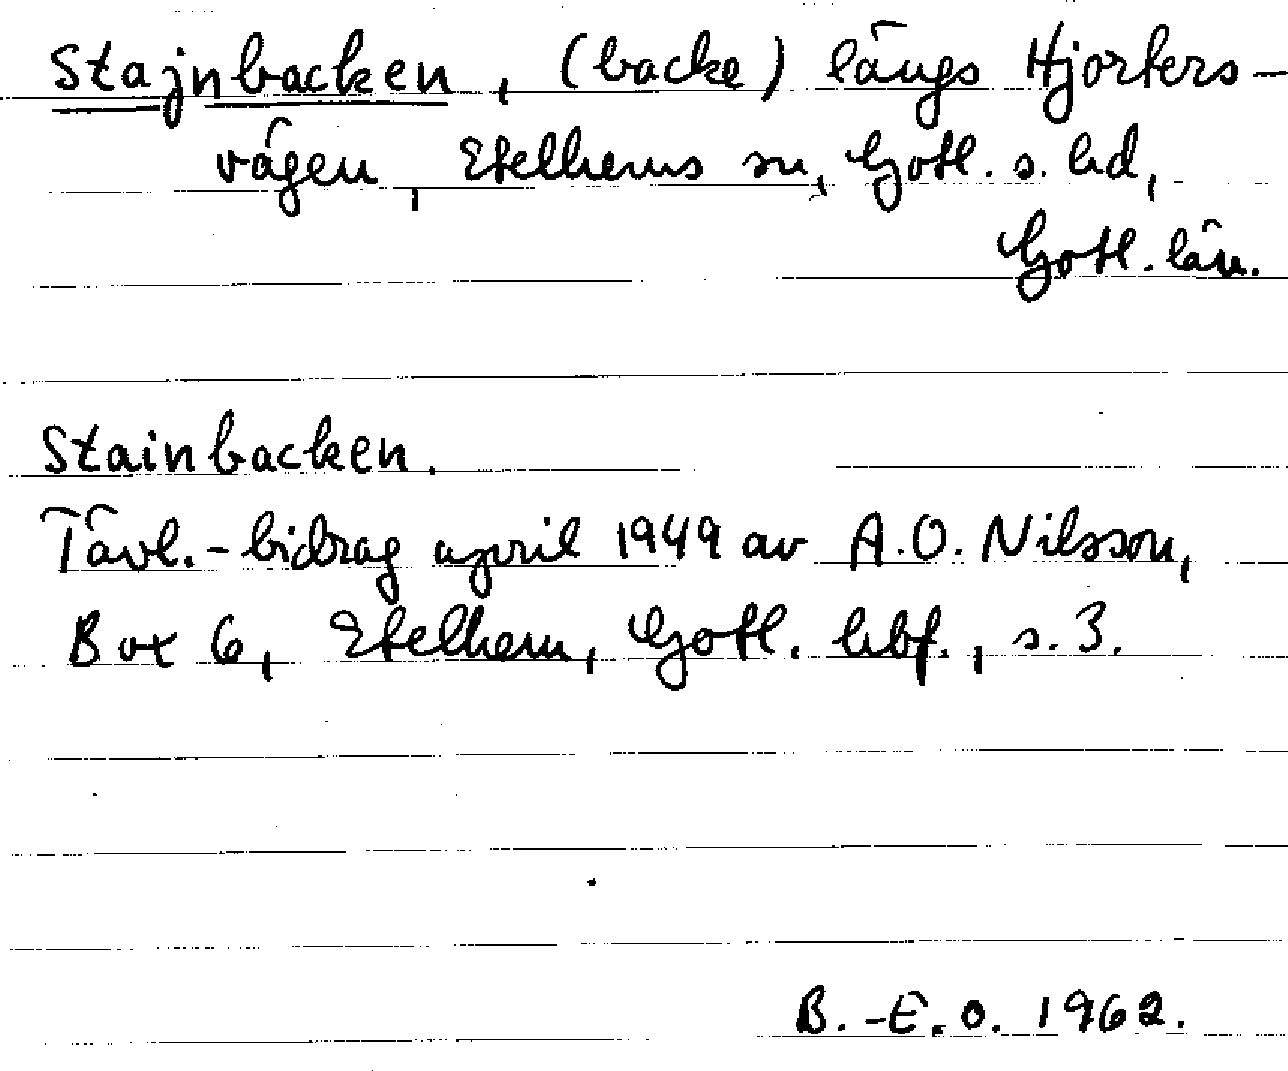 Stajnbacken, (backe) längs Hjorters-
vägen, Etelhems sn, Gotl. s. hd,
Gotl. län.
Stainbacken.
Tävl.-bidrag april 1949 av A.O. Nilsson,
Box 6, Etelhem, Gotl. hbf., s. 3.
B.-E.O. 1962.